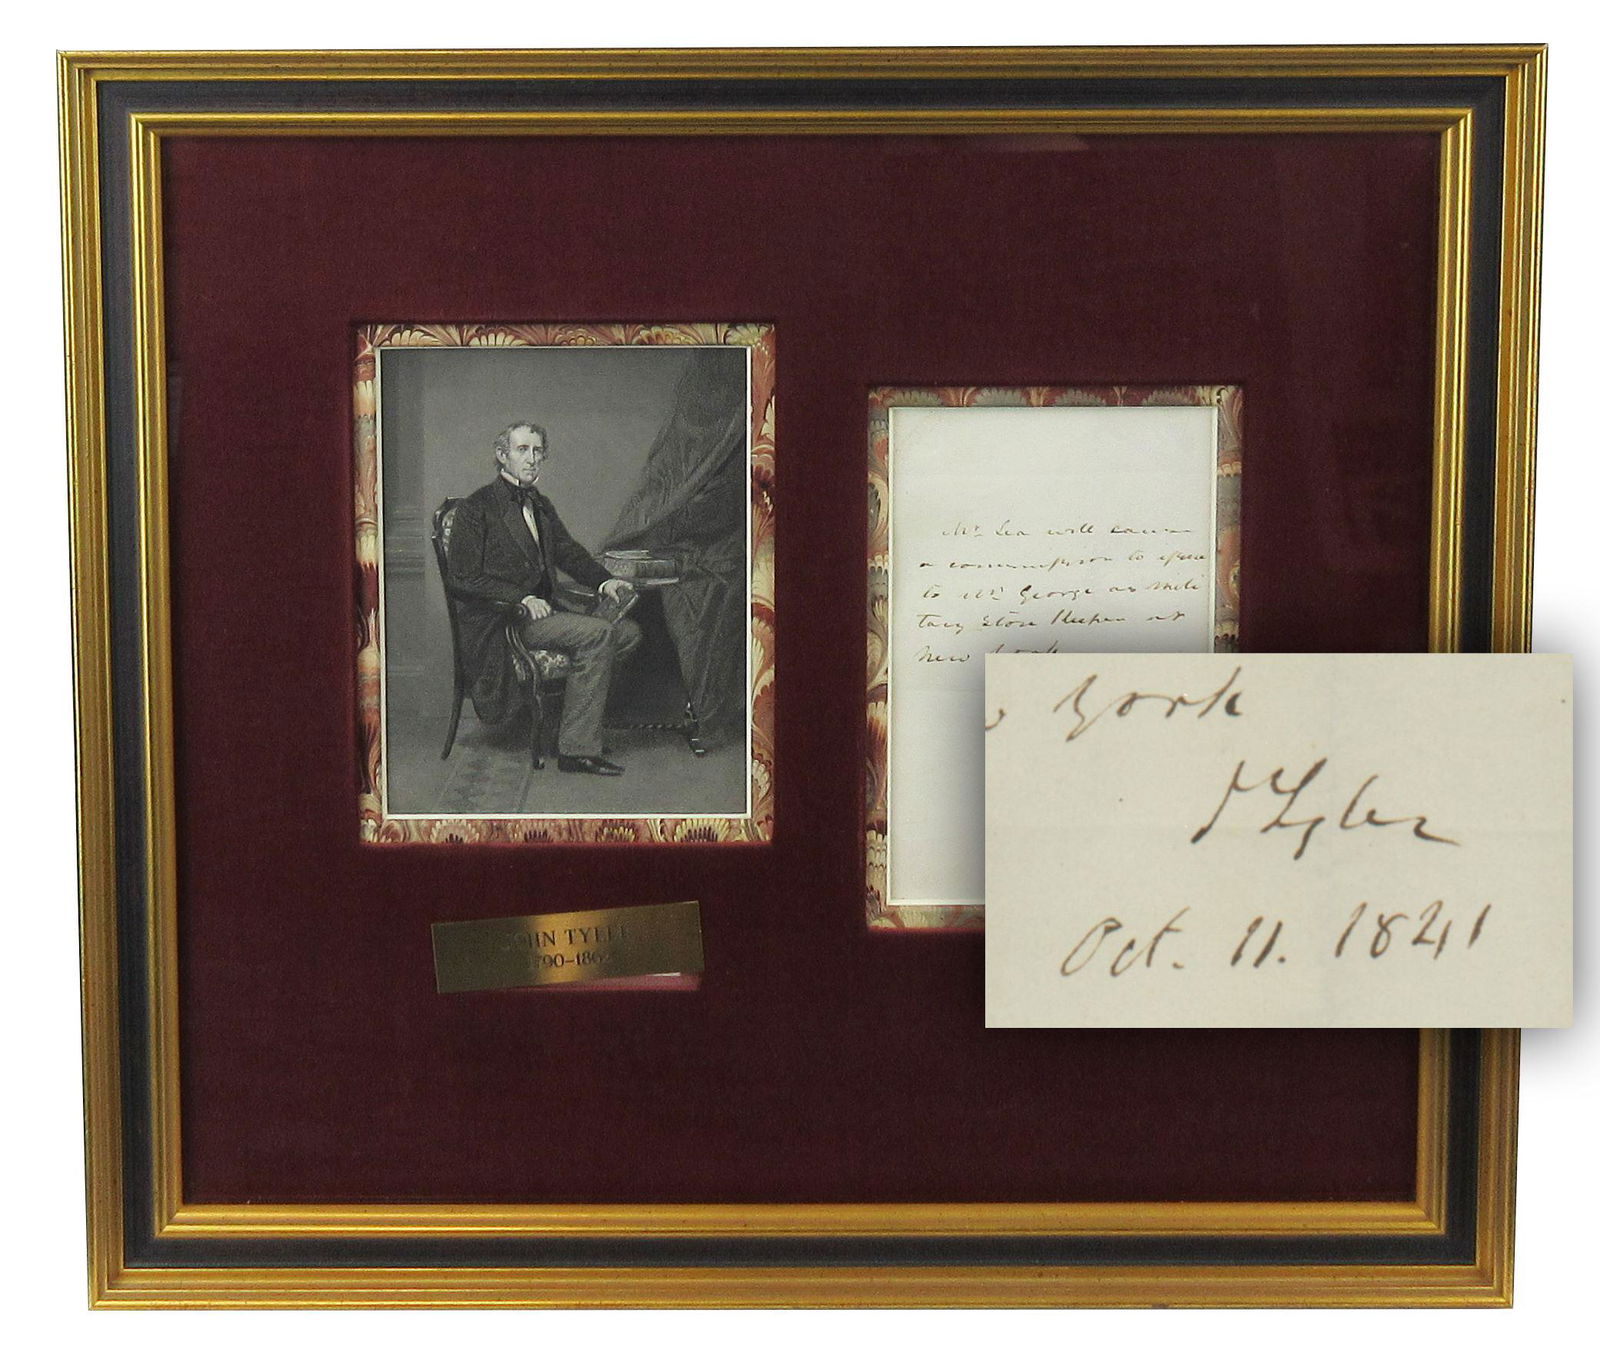 Mr. Lea will cause
a commission to issue
to Mr. George as Mili
tary Store Keeper at
New York
York
J Tyler
Oct. 11. 1841
JOHN TYLER
1790–1862